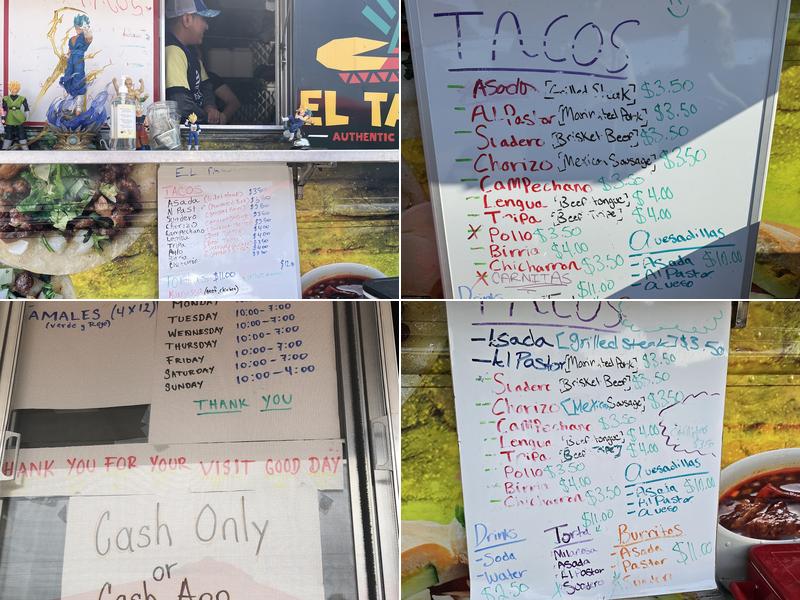 TACOS
EL TA
AUTHENTIC
EL
TACOS
Asada $3.50
Suadero
Chorizo
Campechano
Lengua
Tripa
Pollo
Birria
$11.00
TACOS
- Asada [Grilled Steak] $3.50
- Al Pastor [Marinated Pork] $3.50
- Suadero [Brisket Beef] $3.50
- Chorizo [Mexican Sausage] $3.50
- Campechano $3.50
- Lengua [Beef tongue] $4.00
- Tripa [Beef Tripe] $4.00
x Pollo $3.50
- Birria $4.00
- Chicharron $3.50
x CARNITAS
Quesadillas
- Asada $10.00
- Al Pastor
- Queso
Drinks
AMALES (4 x 12)
(verde y Rojo)
MONDAY
TUESDAY 10:00-7:00
WEDNESDAY 10:00-7:00
THURSDAY 10:00-7:00
FRIDAY 10:00-7:00
SATURDAY 10:00-7:00
SUNDAY 10:00-4:00
THANK YOU
HANK YOU FOR YOUR VISIT GOOD DAY
Cash Only
or
Cash App
TACOS
- Asada [Grilled steak] $3.50
- Al Pastor [Marinated Pork] $3.50
- Suadero [Brisket Beef] $3.50
- Chorizo [Mexican Sausage] $3.50
- Campechano $3.50
- Lengua [Beef tongue] $4.00
- Tripa [Beef Tripe] $4.00
- Pollo $3.50
- Birria $4.00
- Chicharron $3.50
Quesadillas
- Asada $10.00
- Al Pastor
- Queso
Drinks
- Soda
- Water
$2.50
$11.00
Torta
Milanesa
Asada
Al Pastor
Suadero
Burritos
- Asada
- Pastor $11.00